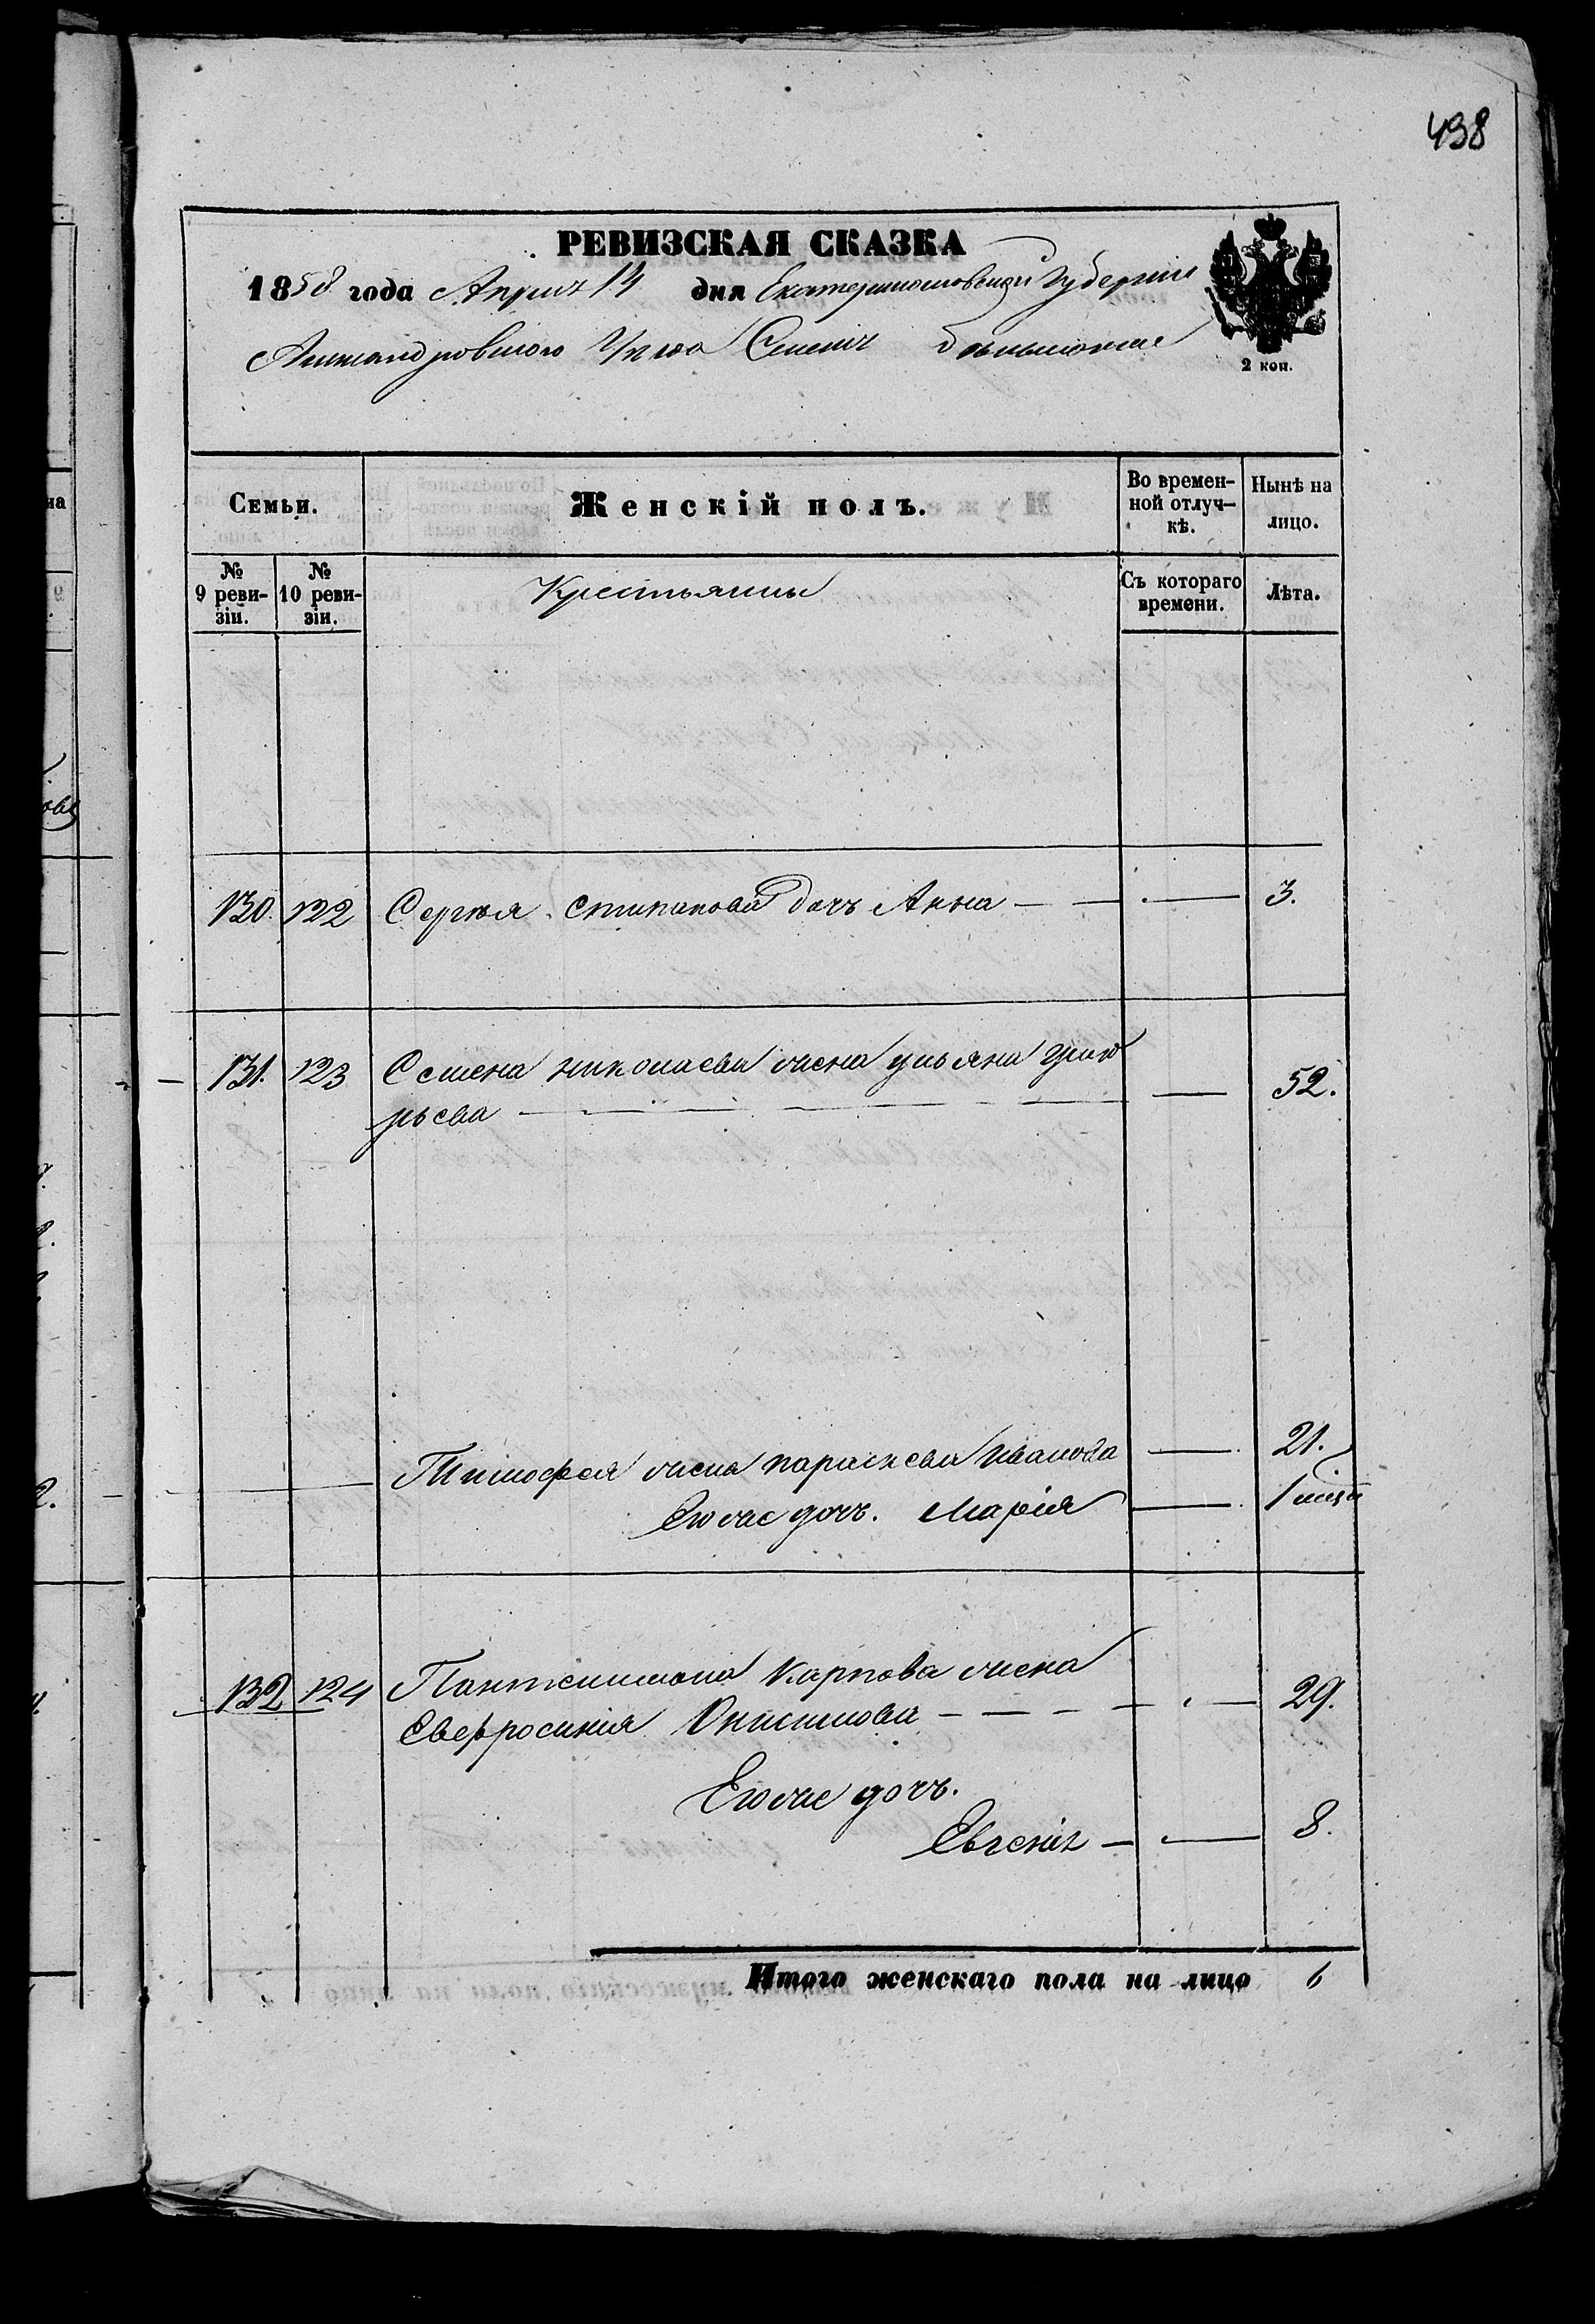 498
РЕВИЗСКАЯ СКАЗКА
1858 года Апреля 14 дня Екатеринославской Губерніи
Александровского Уѣзда Селенія
2 коп.
Семьи.
Женскій полъ.
Во времен-
ной отлуч-
кѣ.
Нынѣ на
лицо.
№
9 реви-
зіи.
№
10 реви-
зіи.
Крестьяны
Съ котораго
времени.
Лѣта.
130. 122 Сергѣя Стипанова дочъ Анна — — — 3.
131. 123 Семена николаева жена ульяна григо
рьева — — — 52.
Тимофея жена параскева Иванова — 21.
Егоже дочъ. Марія — 1 мѣся
132 124 Пантелимона Карпова жена
Евфросинія Онисимова — — — 29.
Егоже дочъ.
Евгенія — — 8.
Итого женскаго пола на лицо 6